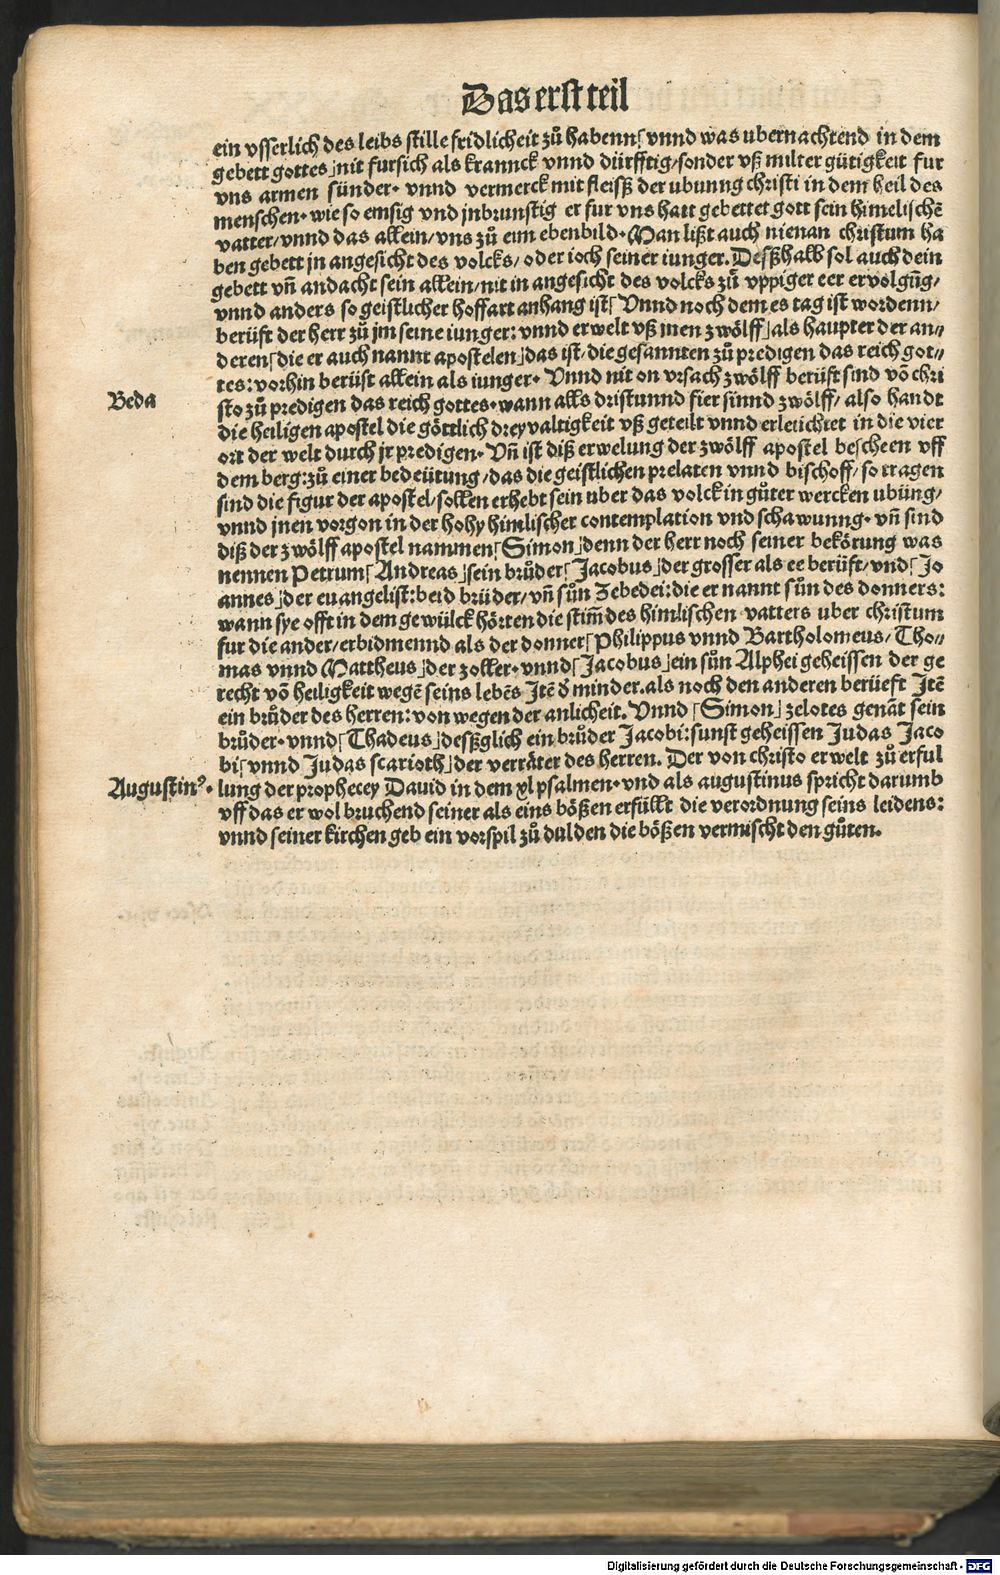 Das erst teil
ein vsserlich des leibs stille fridlicheit zů habenn⌈ vnnd was ubernachtend in dem
gebett gottes⌋nit fursich als krannck vnnd dürfftig/sonder vß milter gütigkeit fur
vns armen sünder· vnnd vermerck mit fleisß der ubunng christi in dem heil des
menschen· wie so emsig vnd jnbrunstig er fur vns hatt gebettet gott sein himelischē
vatter/vnnd das allein/vns zů eim ebenbild·Man lißt auch nienan christum ha
ben gebett jn angesicht des volcks/oder ioch seiner iunger. Desßhalb sol auch dein
gebett vñ andacht sein allein/nit in angesicht des volcks zů vppiger eer ervolgūg/
vnnd anders so geistlicher hoffart anhang ist⌈ Vnnd noch dem es tag ist wordenn/
berüft der herr zů jm seine iunger: vnnd erwelt vß inen zwölff⌋als haupter der an⸗
deren⌈die er auch nannt apostelen⌋das ist/die gesannten zů predigen das reich got⸗
tes: vorhin berüft allein als iunger· Vnnd nit on vrsach zwölff berüft sind vō chri
Beda
sto zů predigen das reich gottes·wann alls dristunnd fier sinnd zwölff/also handt
die heiligen apostel die göttlich dreyvaltigkeit vß geteilt vnnd erleüchtet in die vier
ort der welt durch jr predigen· Vñ ist diß erwelung der zwölff apostel bescheen vff
dem berg:zů einer bedeütung/das die geistlichen prelaten vnnd bischoff/so tragen
sind die figur der apostel/sollen erhebt sein uber das volck in gůter wercken ubüng/
vnnd jnen vorgon in der hohy himlischer contemplation vnd schawunng· vñ sind
diß der zwölff apostel nammen⌈Simon⌋denn der herr noch seiner bekörung was
nennen Petrum⌈Andreas⌋sein brůder⌈Jacobus⌋der grosser als ee berüft/vnd⌈Jo
annes⌋der euangelist:beid brüder/vñ sün Zebedei:die er nannt sün des donners:
wann sye offt in dem gewülck hörten die stim̄ des himlischen vatters uber christum
fur die ander/erbidmennd als der donner⌈Philippus vnnd Bartholomeus/Tho⸗
mas vnnd Mattheus⌋der zoller·vnnd⌈Jacobus⌋ein sůn Alphei geheissen der ge
recht vō heiligkeit wegē seins lebēs Jtē d̄ minder.als noch den anderen berüeft Jtē
ein brůder des herren:von wegen der anlicheit. Vnnd⌈Simon⌋zelotes genāt sein
brůder·vnnd⌈Thadeus⌋desßglich ein brůder Jacobi:sunst geheissen Judas Jaco
bi⌈vnnd Judas scarioth⌋der verräter des herren. Der von christo erwelt zů erful
Augustinꝰ·
lung der prophecey David in dem xl psalmen·vnd als augustinus spricht darumb
vff das er wol bruchend seiner als eins bößen erfüllt die verordnung seins leidens:
vnnd seiner kirchen geb ein vorspil zů dulden die bößen vermischt den gůten.
Digitalisierung gefördert durch die Deutsche Forschungsgemeinschaft - DFG